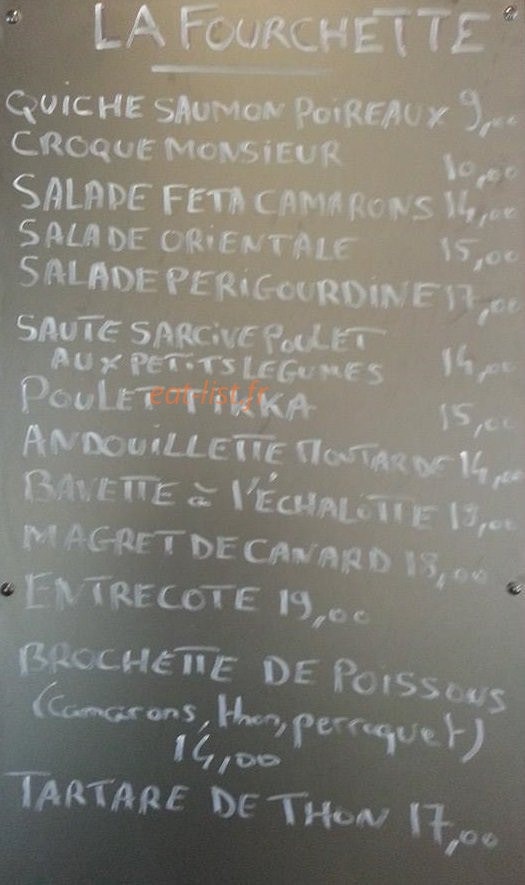 LA FOURCHETTE
QUICHE SAUMON POIREAUX 9,00
CROQUE MONSIEUR 10,00
SALADE FETA CAMARONS 14,00
SALADE ORIENTALE 15,00
SALADE PERIGOURDINE 17,00
SAUTE SARCIVE POULET
AUX PETITS LEGUMES 14,00
POULET TIKKA 15,00
eat-list.fr
ANDOUILLETTE MOUTARDE 14,00
BAVETTE à l'ÉCHALOTTE 18,00
MAGRET DE CANARD 18,00
ENTRECOTE 19,00
BROCHETTE DE POISSONS
(Camarons, thon, perroquet)
14,00
TARTARE DE THON 17,00